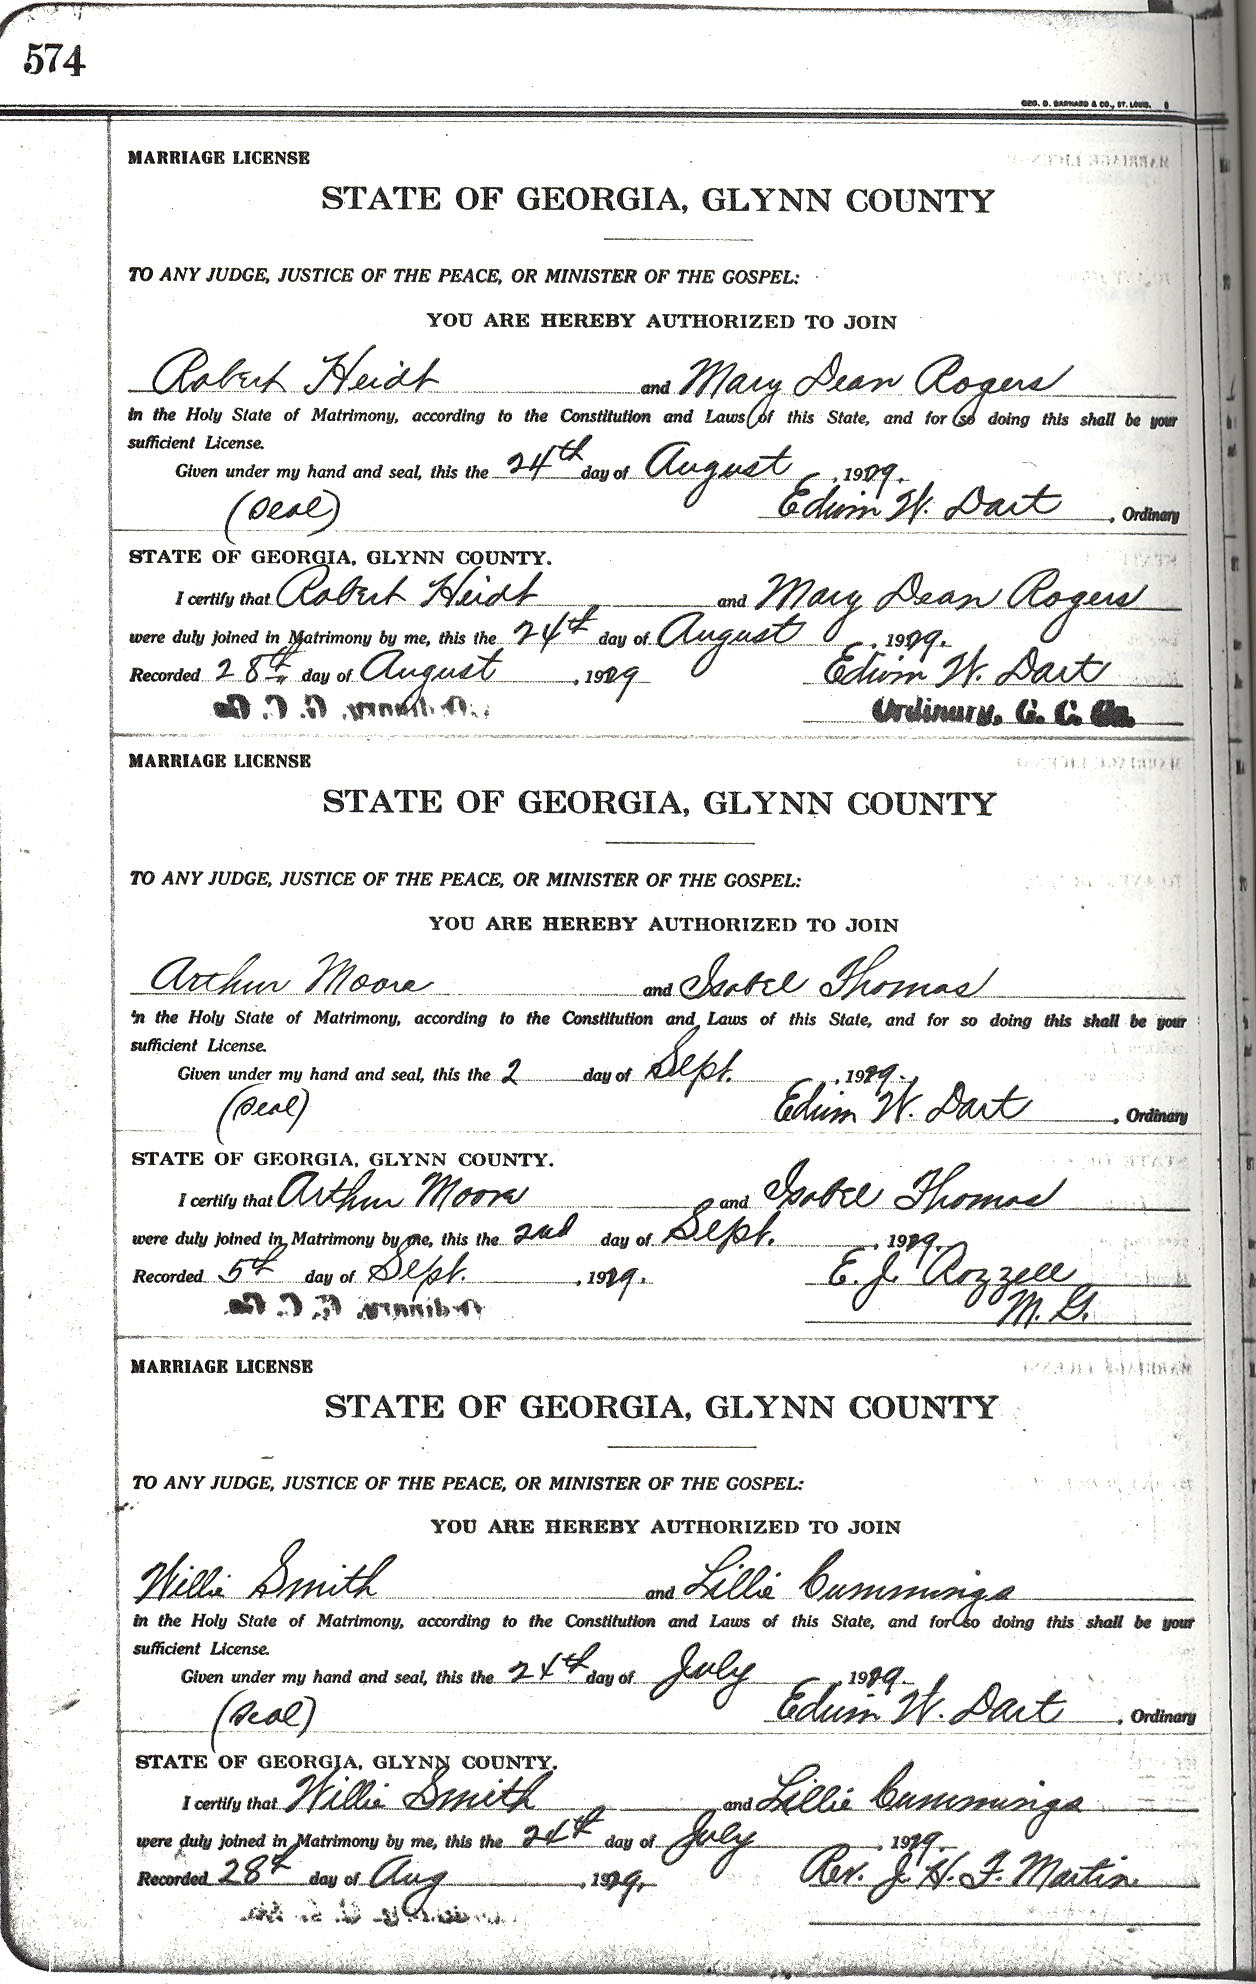 574
GEO. D. BARNARD & CO., ST. LOUIS.
MARRIAGE LICENSE
STATE OF GEORGIA, GLYNN COUNTY
TO ANY JUDGE, JUSTICE OF THE PEACE, OR MINISTER OF THE GOSPEL:
YOU ARE HEREBY AUTHORIZED TO JOIN
Robert Heidt and Mary Dean Rogers
in the Holy State of Matrimony, according to the Constitution and Laws of this State, and for so doing this shall be your
sufficient License.
Given under my hand and seal, this the 24th day of August, 1929.
(Seal) Edwin W. Dart, Ordinary
STATE OF GEORGIA, GLYNN COUNTY.
I certify that Robert Heidt and Mary Dean Rogers
were duly joined in Matrimony by me, this the 24th day of August, 1929.
Recorded 28th day of August, 1929 Edwin W. Dart
Ordinary, G. C. Ga.
MARRIAGE LICENSE
STATE OF GEORGIA, GLYNN COUNTY
TO ANY JUDGE, JUSTICE OF THE PEACE, OR MINISTER OF THE GOSPEL:
YOU ARE HEREBY AUTHORIZED TO JOIN
Arthur Moore and Isabel Thomas
in the Holy State of Matrimony, according to the Constitution and Laws of this State, and for so doing this shall be your
sufficient License.
Given under my hand and seal, this the 2 day of Sept., 1929.
(Seal) Edwin W. Dart, Ordinary
STATE OF GEORGIA, GLYNN COUNTY.
I certify that Arthur Moore and Isabel Thomas
were duly joined in Matrimony by me, this the 2nd day of Sept., 1929.
Recorded 5th day of Sept., 1929. E. J. Rozzell
M. G.
MARRIAGE LICENSE
STATE OF GEORGIA, GLYNN COUNTY
TO ANY JUDGE, JUSTICE OF THE PEACE, OR MINISTER OF THE GOSPEL:
YOU ARE HEREBY AUTHORIZED TO JOIN
Willie Smith and Lillie Cummings
in the Holy State of Matrimony, according to the Constitution and Laws of this State, and for so doing this shall be your
sufficient License.
Given under my hand and seal, this the 24th day of July, 1929.
(Seal) Edwin W. Dart, Ordinary
STATE OF GEORGIA, GLYNN COUNTY.
I certify that Willie Smith and Lillie Cummings
were duly joined in Matrimony by me, this the 24th day of July, 1929.
Recorded 28th day of Aug, 1929. Rev. J. H. F. Martin